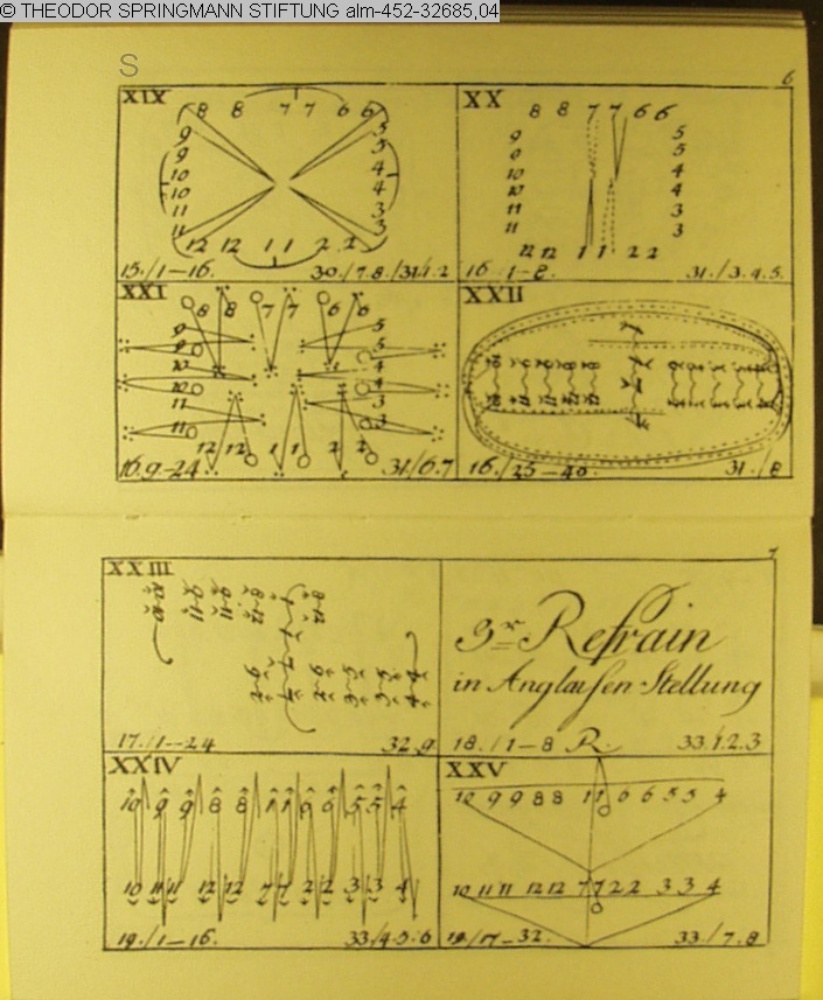 © THEODOR SPRINGMANN STIFTUNG alm-452-32685,04
S
6
XIX
8 8 7 7 6 6
9 5
9 5
10 4
10 4
11 3
11 3
12 12 1 1 2 2
15./1-16. 30./7.8./31/1.2
XX
8 8 7 7 6 6
9 5
9 5
10 4
10 4
11 3
11 3
12 12 1 1 2 2
16./1-8. 31./3.4.5.
XXI
8 8 7 7 6 6
9 5
9 5
10 4
10 4
11 3
11 3
12 12 1 1 2 2
16.9-24 31/6.7
XXII
16./25-40. 31./8
7
XXIII
17./1-24 32.9
3r Refrain
in Anglaisen Stellung
18./1-8 R. 33./1.2.3
XXIV
10 9 9 8 8 1 1 6 6 5 5 4
10 11 11 12 12 7 7 2 2 3 3 4
19./1-16. 33/4.5.6
XXV
10 9 9 8 8 1 1 6 6 5 5 4
10 11 11 12 12 7 7 2 2 3 3 4
19./17-32. 33./7.8